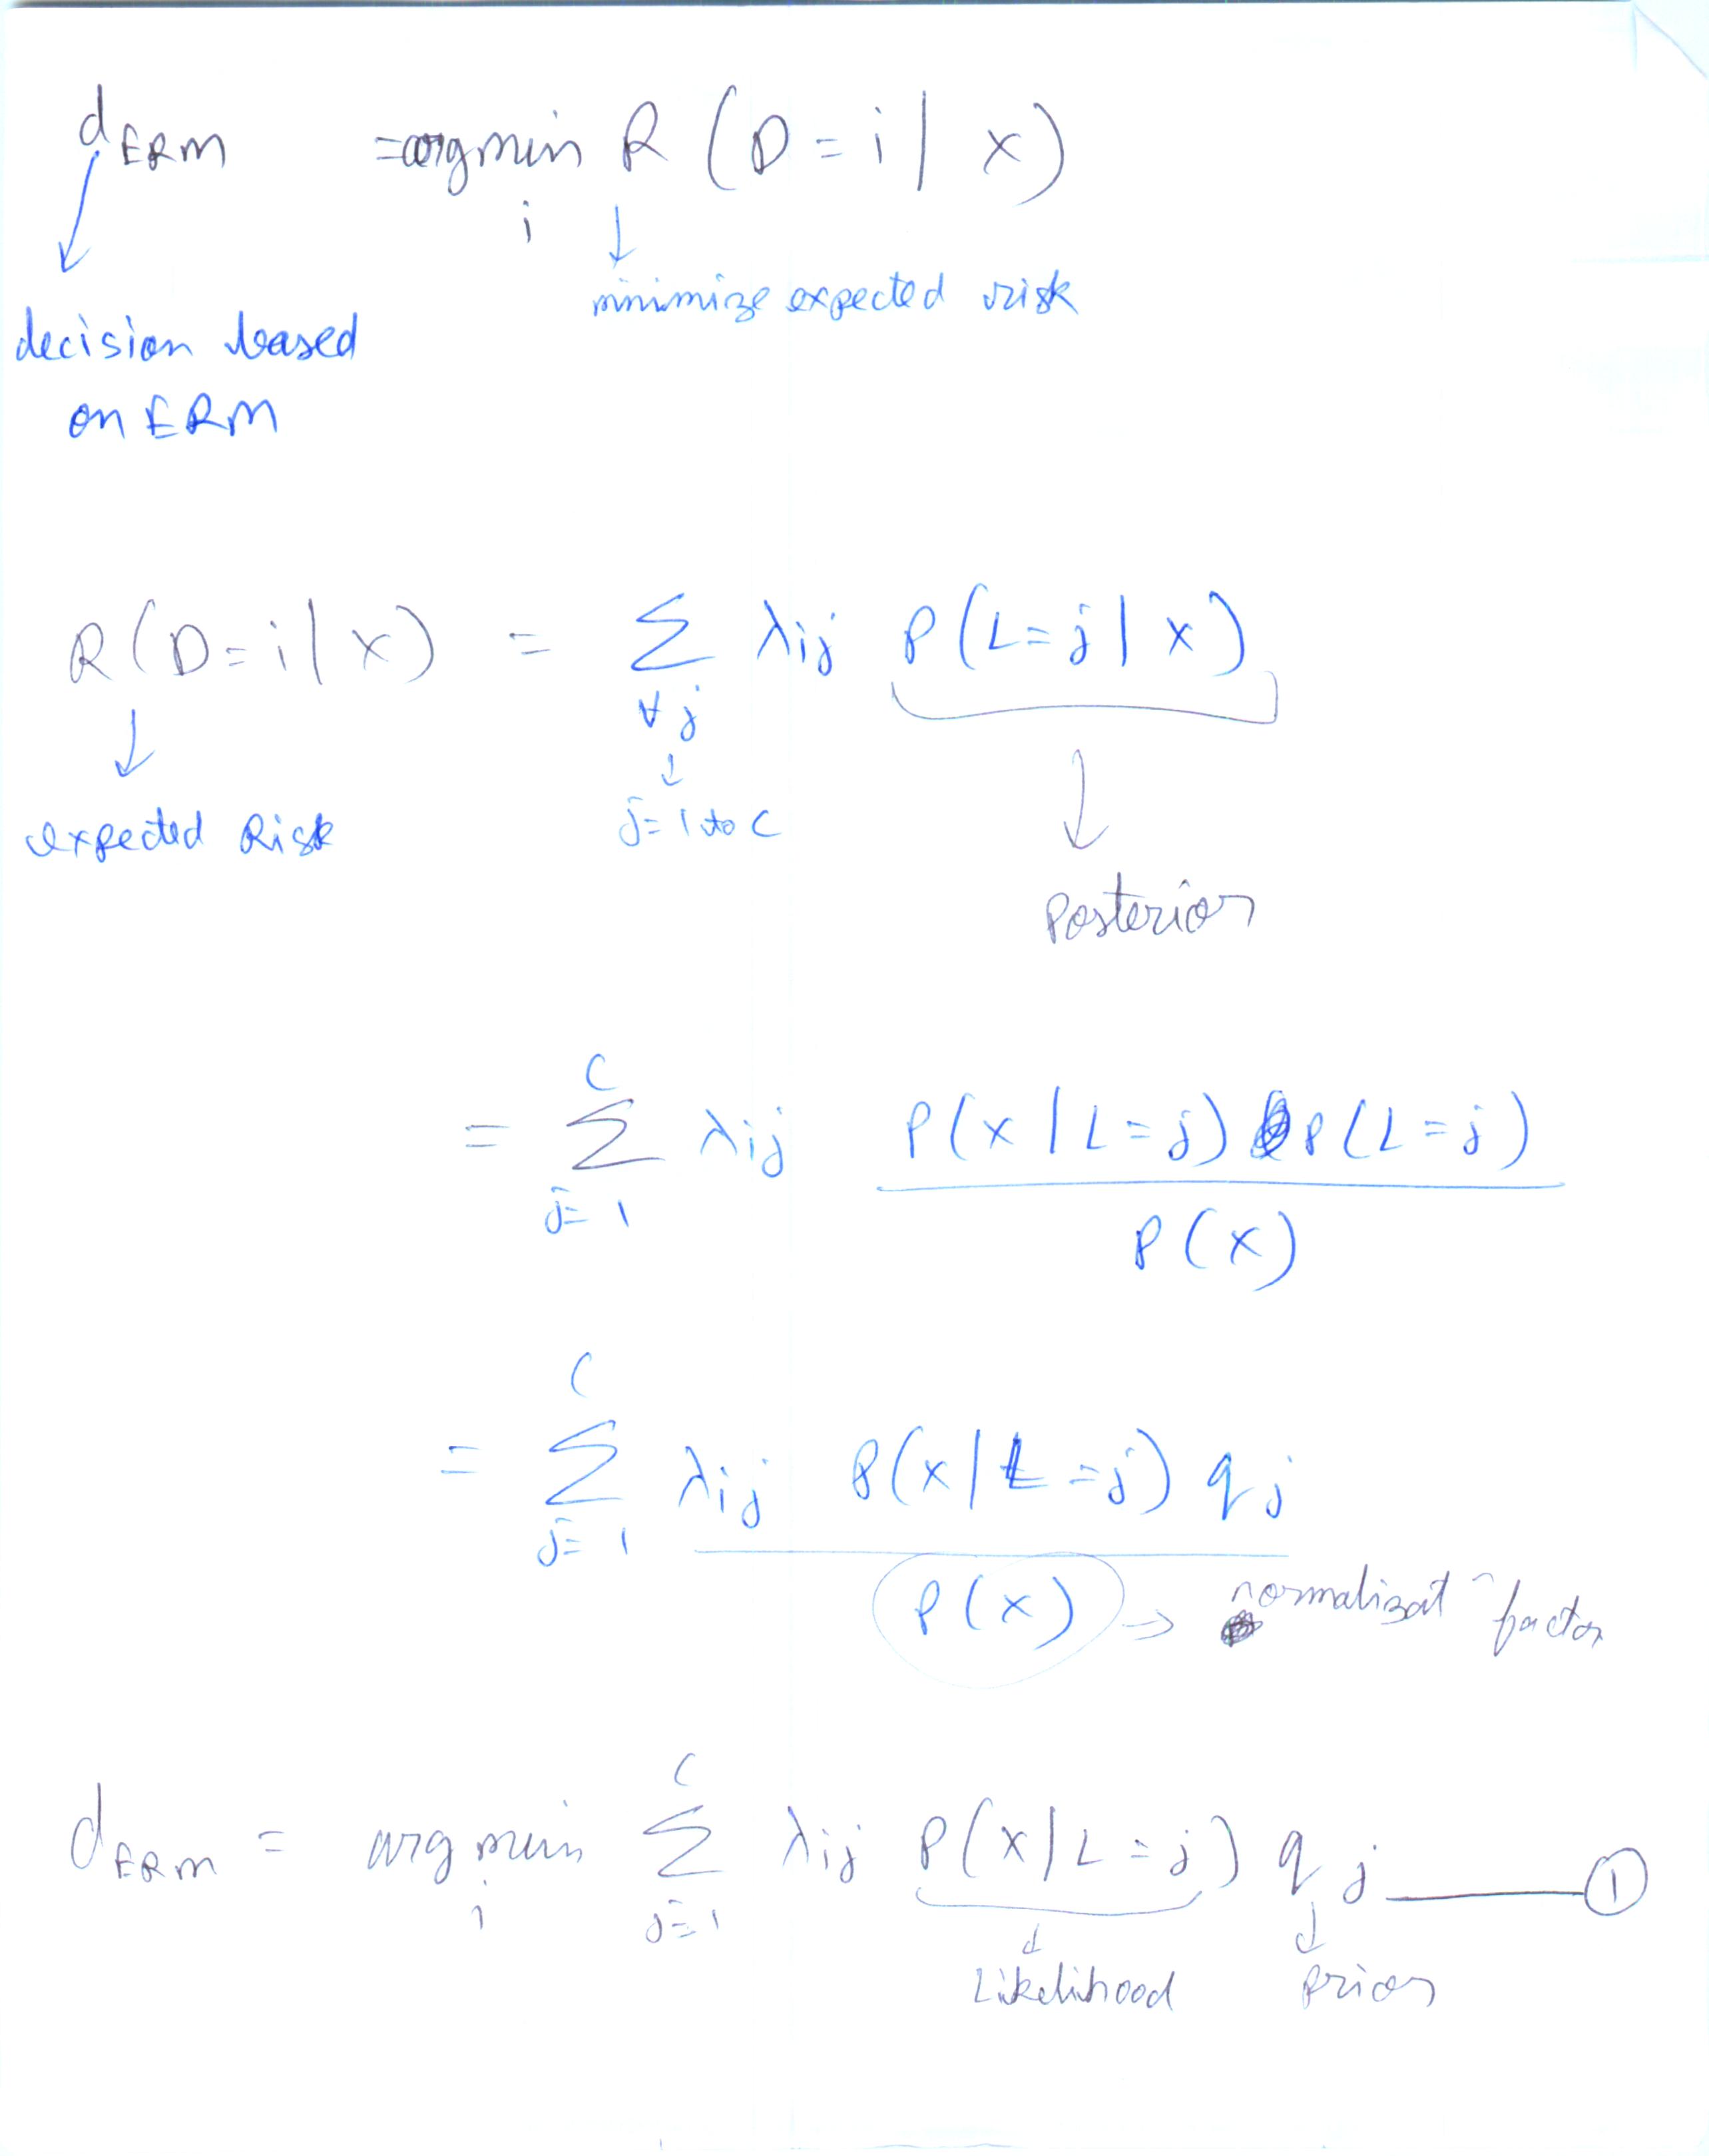 d_ERM = argmin_i R (D = i | x)
↓ decision based on ERM
↓ minimize expected risk
R(D = i | x) = Σ_{∀j} λij P(L = j | x)
↓ expected Risk
↓ j = 1 to C
↓ Posterior
= Σ_{j=1}^{C} λij P(x | L = j) P(L = j) / P(x)
= Σ_{j=1}^{C} λij P(x | L = j) qj / P(x) → normalizat¯ factor
d_ERM = argmin_i Σ_{j=1}^{C} λij P(x | L = j) qj ——— ①
↓ Likelihood
↓ Prior